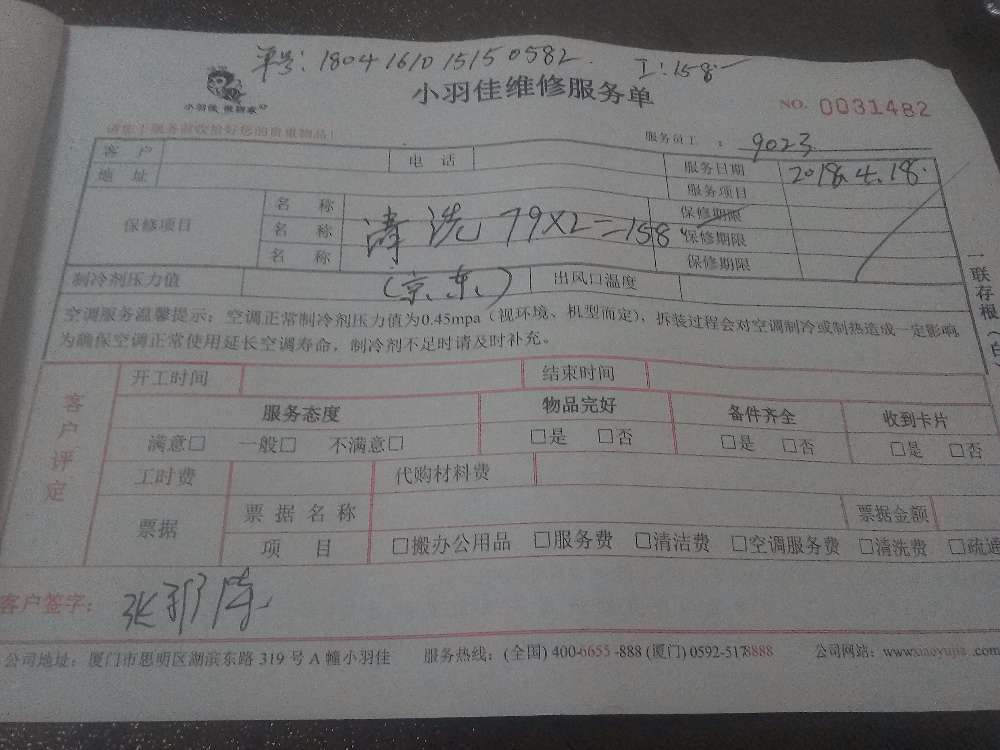 单号:180416101515​0582 工:158.
小羽佳维修服务单
小羽佳 NO. 0031482
服务员工: 9023
客户 电话 服务日期 2018.4.18.
地址 服务项目
保修项目 名称 保修期限
名称 清洗 79X2=158 保修期限
名称 保修期限
制冷剂压力值 (京东) 出风口温度
一联存根(白
空调服务温馨提示:空调正常制冷剂压力值为0.45mpa(视环境、机型而定),拆装过程会对空调制冷或制热造成一定影响
为确保空调正常使用延长空调寿命,制冷剂不足时请及时补充。
客户评定 开工时间 结束时间
服务态度 物品完好 备件齐全 收到卡片
满意□ 一般□ 不满意□ □是 □否 □是 □否 □是 □否
工时费 代购材料费
票据 票据名称 票据金额
项目 □搬办公用品 □服务费 □清洁费 □空调服务费 □清洗费 □疏通
客户签字:
公司地址:厦门市思明区湖滨东路 319 号 A 幢小羽佳 服务热线:(全国) 400-6655-888 (厦门) 0592-5178888 公司网站:www.xiaoyujia.com